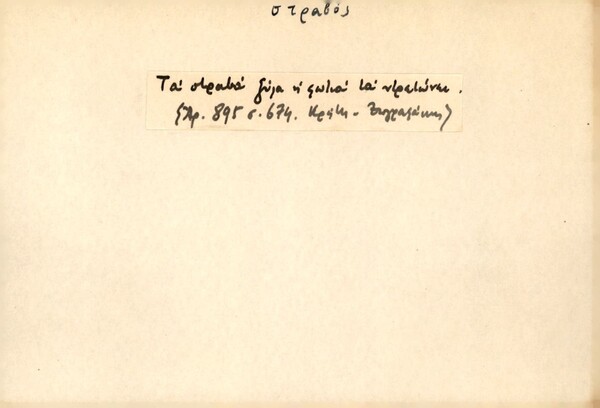 στραβός
Τα στραβά ξύλα η φωτιά τα ντρετώνει.
(Αρ. 895 σ. 674. Κρήτη - Ζωγραφάκης)